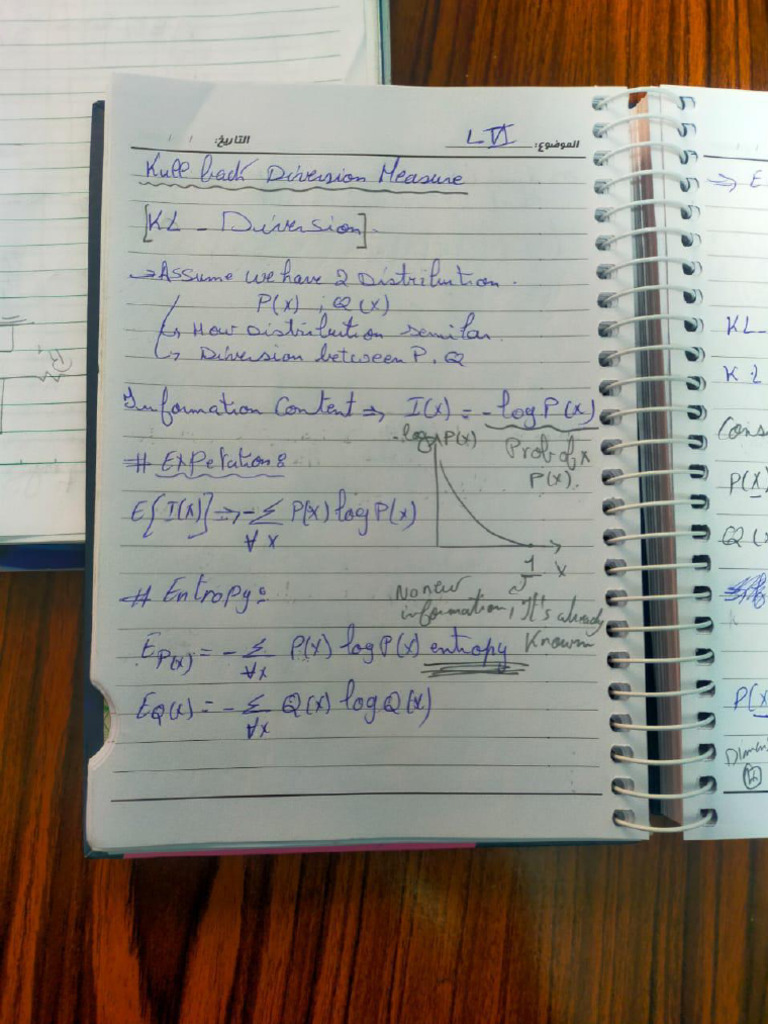 التاريخ: / /
الموضوع: L VI
Kull back Diversion Measure
[KL - Diversion]
→ Assume we have 2 Distribution.
P(x) ; Q(x)
↳ How Distribution semilar
↳ Diversion between P, Q
Information Content ⇒ I(x) = -log P(x)
-log P(x)
Prob of x
P(x).
# Expetation:
E{I(x)} → -Σ P(x) log P(x)
∀x
1 x
No new
information, It's already
Known
# Entropy:
E P(x) = -Σ P(x) log P(x) entropy
∀x
E Q(x) = -Σ Q(x) log Q(x)
∀x
⇒ E
KL
K.L
Cons
P(x)
Q(x
P(x
Dimen